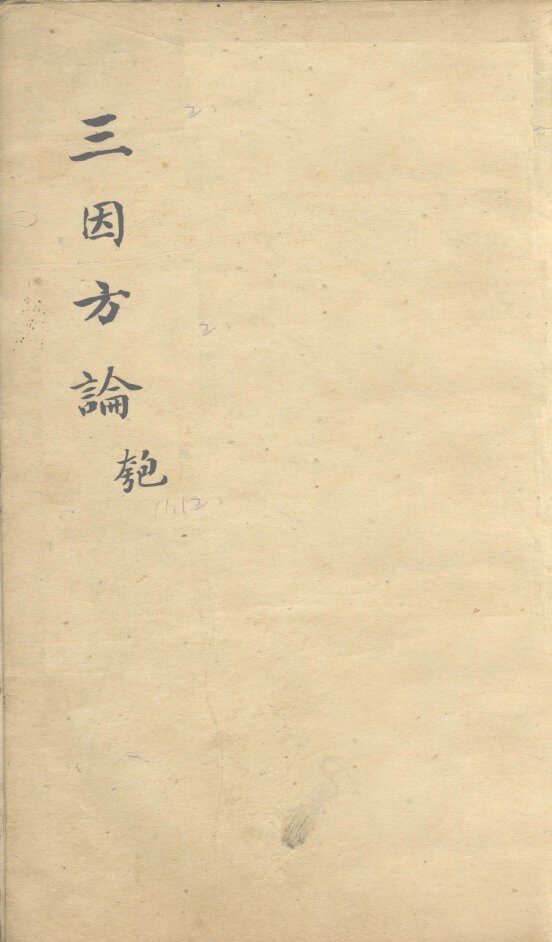 三因方論
匏
2
2
11,12